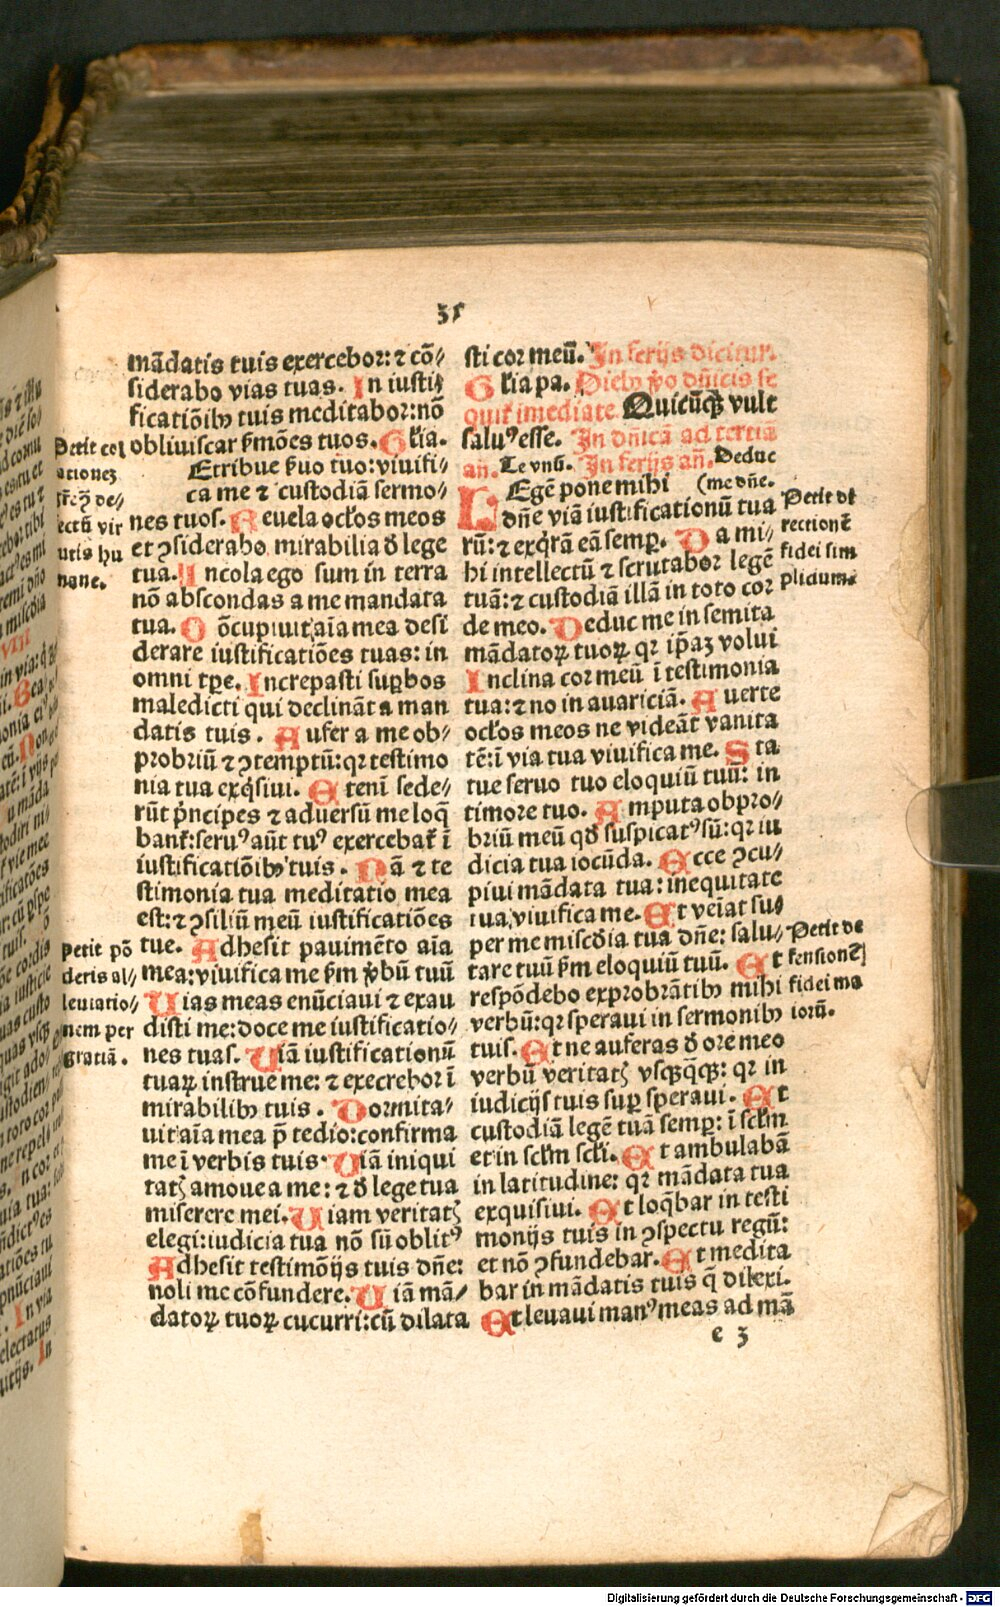 35
mādatis tuis exercebor: ⁊ cō⸗
siderabo vias tuas. In iusti⸗
ficatiōibꝰ tuis meditabor: nō
obliuiscar ẜmōes tuos. Gl̃ia.
Etribue ẜuo tuo: viuifi⸗
ca me ⁊ custodiā sermo⸗
nes tuos. Reuela oc̃los meos
et ꝯsiderabo mirabilia d̕ lege
tua. Incola ego sum in terra
nō abscondas a me mandata
tua. Cōcupiuit aīa mea desi
derare iustificatiōes tuas: in
omni tꝑe. Increpasti suꝑbos
maledicti qui declināt a man
datis tuis. Aufer a me ob⸗
probriū ⁊ ꝯtemptū: qꝛ testimo
nia tua exq̇siui. Etenī sede⸗
rūt ṗncipes ⁊ aduersū me loq̄
banť: seruꝰ aūt tuꝰ exercebať ī
iustificatiōibꝰ tuis. Nā ⁊ te
stimonia tua meditatio mea
est: ⁊ ꝯsiliū meū iustificatiōes
tue. Adhesit pauimēto aīa
mea: viuifica me ẜm v̕bū tuū
Uias meas enūciaui ⁊ exau
disti me: doce me iustificatio⸗
nes tuas. Uiā iustificationū
tuaꝝ instrue me: ⁊ execrebor ī
mirabilibꝰ tuis. Dormita⸗
uit aīa mea p̄ tedio: confirma
me ī verbis tuis. Uiā iniqui
tatꝭ amoue a me: ⁊ d̕ lege tua
miserere mei. Uiam veritatꝭ
elegi: iudicia tua nō sū oblitꝰ
Adhesit testimōijs tuis dn̄e:
noli me cōfundere. Uiā mā⸗
datoꝝ tuoꝝ cucurri: cū dilata
Petit col
ationeꝫ
de⸗
ectū vir
utis hu
mane.
Petit pō
deris al⸗
leuiatio⸗
nem per
gratiā.
sti cor meū. In ferijs dicitur.
Gl̃ia pa. Diebꝰ v̕o dn̄icis se
quiť imediate. Quicūqꝫ vult
saluꝰ esse. In dn̄ica ad tertiā
an̄. Te vnū. In ferijs an̄. Deduc
Legē pone mihi (me dn̄e.
dn̄e viā iustificationū tua
rū: ⁊ exq̇rā eā semꝑ. Da mi⸗
hi intellectū ⁊ scrutabor legē
tuā: ⁊ custodiā illā in toto cor
de meo. Deduc me in semita
mādatoꝝ tuoꝝ qꝛ ip̄aꝫ volui
Inclina cor meū ī testimonia
tua: ⁊ no in auariciā. Auerte
oc̃los meos ne videāt vanita
tē: ī via tua viuifica me. Sta
tue seruo tuo eloquiū tuū: in
timore tuo. Amputa obpro⸗
briū meū qd̕ suspicatꝰ sū: qꝛ iu
dicia tua iocūda. Ecce ꝯcu⸗
piui mādata tua: in equitate
tua viuifica me. Et veīat suꝰ
per me mis̃c̃dia tua dn̄e: salu⸗
tare tuū ẜm eloquiū tuū. Et
respōdebo exprobrātibꝰ mihi
verbū: qꝛ speraui in sermonibꝰ
tuis. Et ne auferas d̕ ore meo
verbū veritatꝭ vsqꝫq̄qꝫ: qꝛ in
iudicijs tuis suꝑ speraui. Et
custodiā legē tuā semꝑ: ī sc̃lm
et in sc̃lm sc̃li. Et ambulabā
in latitudine: qꝛ mādata tua
exquisiui. Et loq̄bar in testi
monijs tuis in ꝯspectu regū:
et nō ꝯfundebar. Et medita
bar in mādatis tuis q̄ dilexi.
Et leuaui manꝰ meas ad mā
Petit di
rectionē
fidei sim
plicium.
Petit de
fensioneꝫ
fidei ma
iorū.
e 3
Digitalisierung gefördert durch die Deutsche Forschungsgemeinschaft - DFG